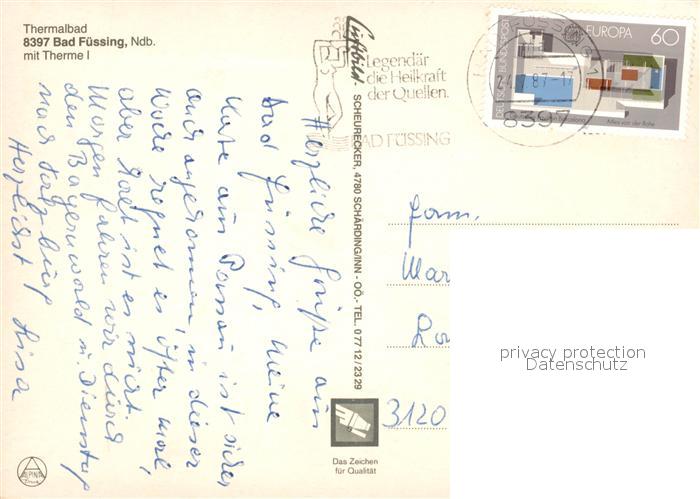 Thermalbad
8397 Bad Füssing, Ndb.
mit Therme I
Luftbild - SCHEURECKER, 4780 SCHÄRDING/INN - OÖ.- TEL. 0 77 12 / 23 29
Legendär
die Heilkraft
der Quellen.
BAD FÜSSING
8397
EUROPA 60
DEUTSCHE BUNDESPOST
Mies van der Rohe
Herzliche Grüße aus
Bad Füssing, meine
Karte aus Passau ist sicher
auch angekommen, in dieser
Woche regnet es öfter mal,
aber kalt ist es nicht.
Morgen fahren wir durch
den Bayerwald u. Dienstag
nach Salzburg
Herzlichst Lisa
Fam.
Mar
3120
privacy protection
Datenschutz
Das Zeichen
für Qualität
ALPINA